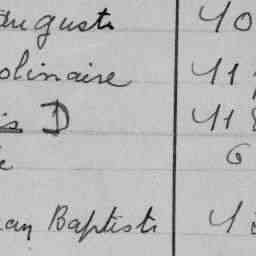 auguste 40
olinaire 41
is D 48
e 6
ean Baptiste 4